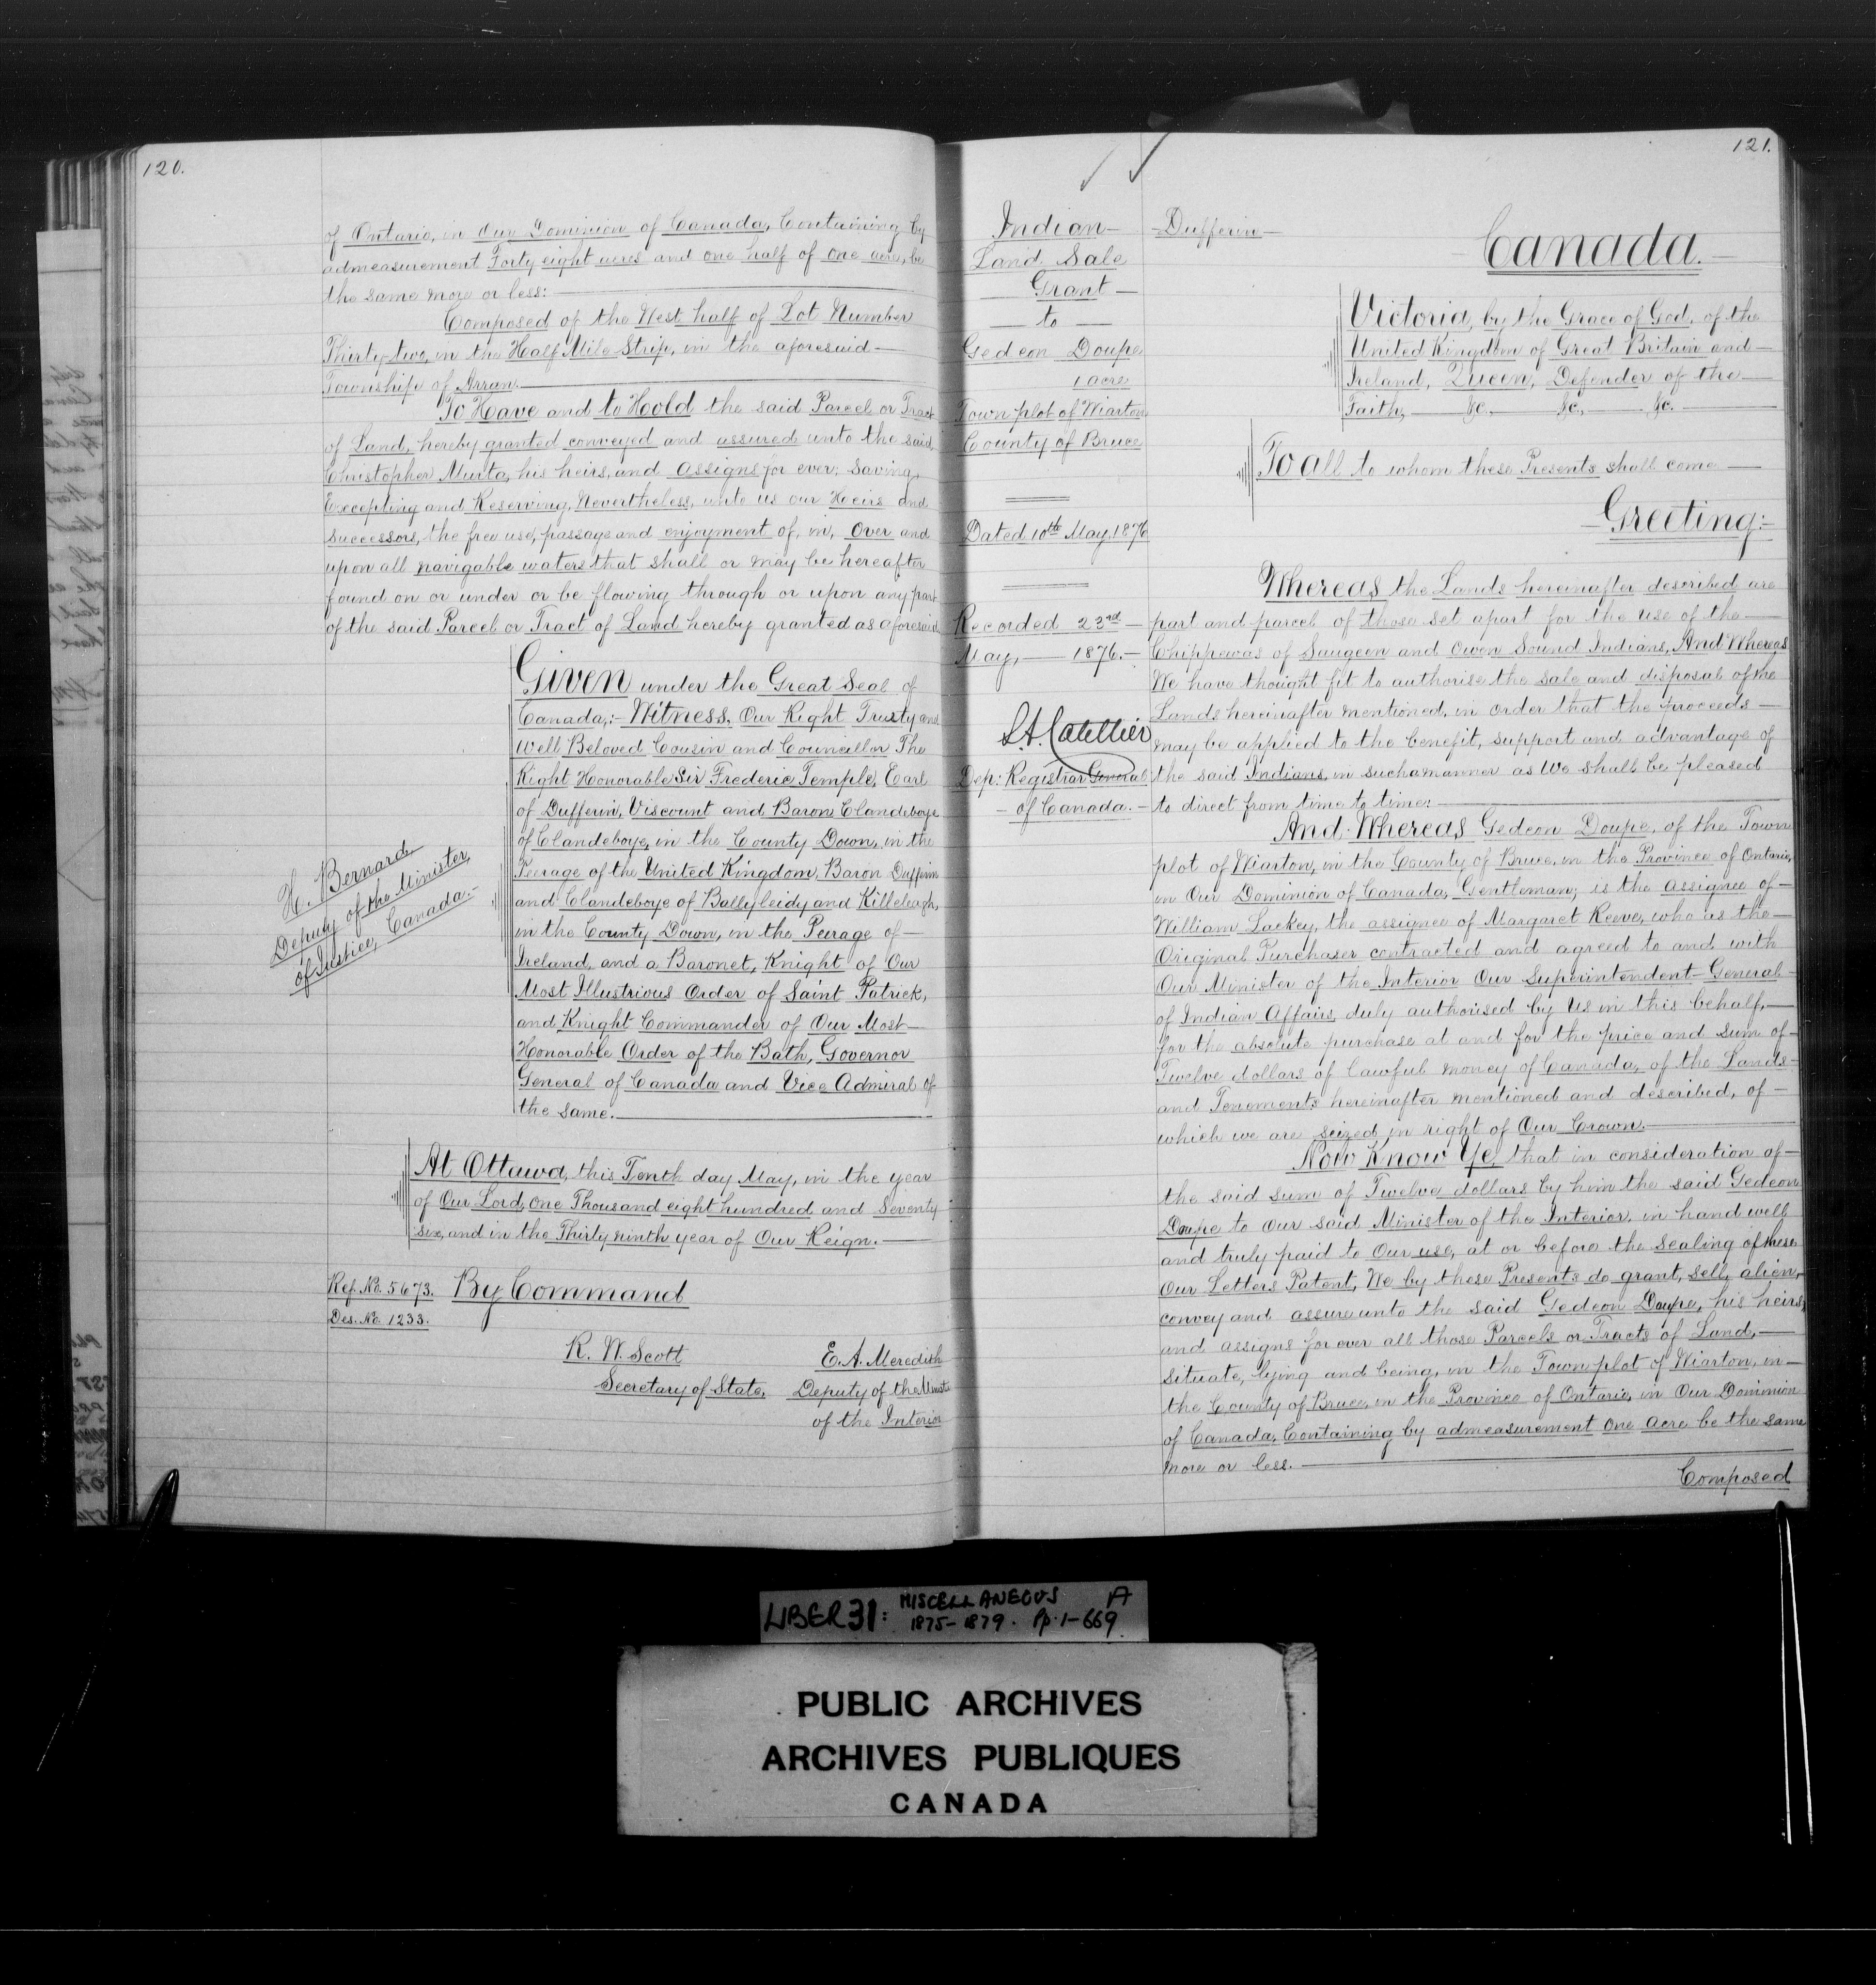 120.
of Ontario, in Our Dominion of Canada, Containing by
admeasurement Forty eight acres and one half of one acre, be
the same more or less:
Composed of the West half of Lot Number
Thirty-two, in the Half Mile Strip, in the aforesaid
Township of Arran.
To Have and to Hold the said Parcel or Tract
of Land, hereby granted conveyed and assured unto the said
Christopher Murta, his heirs, and assigns for ever; Saving,
Excepting and Reserving, Nevertheless, unto us our Heirs and
Successors, the free use, passage and enjoyment of, in, over and
upon all navigable waters that shall or may be hereafter
found on or under or be flowing through or upon any part
of the said Parcel or Tract of Land hereby granted as aforesaid
Given under the Great Seal of
Canada,:- Witness, Our Right Trusty and
Well Beloved Cousin and Councillor The
Right Honorable Sir Frederic Temple, Earl
of Dufferin, Viscount and Baron Clandeboye
of Clandeboye, in the County Down, in the
Peerage of the United Kingdom, Baron Dufferin
and Clandeboye of Ballyleidy and Killeleagh,
in the County Down, in the Peerage of
Ireland, and a Baronet, Knight of Our
Most Illustrious Order of Saint Patrick,
and Knight Commander of Our Most
Honorable Order of the Bath, Governor
General of Canada and Vice Admiral of
the same.
H. Bernard
Deputy of the Minister
of Justice, Canada.-
At Ottawa, this Tenth day May, in the year
of Our Lord, One Thousand eight hundred and Seventy
six, and in the Thirty ninth year of Our Reign.
Ref. No. 5673. By Command
Des. No. 1233.
R. W. Scott
Secretary of State,
E. A. Meredith
Deputy of the Minister
of the Interior
121.
Indian
Land Sale
Grant
to
Gedeon Doupe
1 acre
Town plot of Wiarton
County of Bruce
Dated 10th May, 1876
Recorded 23rd
May, 1876.
L. A. Catellier
Dep: Registrar General
of Canada.
Dufferin
Canada.
Victoria, by the Grace of God, of the
United Kingdom of Great Britain and
Ireland, Queen, Defender of the
Faith, &c, &c, &c.
To all to whom these Presents shall come
Greeting:
Whereas the Lands hereinafter described are
part and parcel of those set apart for the use of the
Chippewas of Saugeen and Owen Sound Indians, And Whereas
We have thought fit to authorise the sale and disposal of the
Lands hereinafter mentioned, in order that the proceeds
may be applied to the benefit, support and advantage of
the said Indians, in such a manner as We shall be pleased
to direct from time to time:
And Whereas Gedeon Doupe, of the Town
plot of Wiarton, in the County of Bruce, in the Province of Ontario,
in Our Dominion of Canada, Gentleman; is the assignee of
William Lackey, the assignee of Margaret Reeve, who as the
Original Purchaser contracted and agreed to and with
Our Minister of the Interior Our Superintendent-General
of Indian Affairs, duly authorised by Us in this behalf,
for the absolute purchase at and for the price and sum of
Twelve dollars of lawful money of Canada, of the Lands
and Tenements hereinafter mentioned and described, of
which we are seized in right of Our Crown.
Now Know Ye, that in consideration of
the said sum of Twelve dollars by him the said Gedeon
Doupe to Our said Minister of the Interior, in hand well
and truly paid to Our use, at or before the Sealing of these
Our Letters Patent, We by these Presents do grant, sell, alien,
convey and assure unto the said Gedeon Doupe, his heirs,
and assigns for ever all those Parcels or Tracts of Land,
situate, lying and being, in the Town plot of Wiarton, in
the County of Bruce, in the Province of Ontario, in Our Dominion
of Canada, Containing by admeasurement One acre be the same
more or less.
Composed
LIBER 31: MISCELLANEOUS A
1875-1879. Pp. 1-669
PUBLIC ARCHIVES
ARCHIVES PUBLIQUES
CANADA